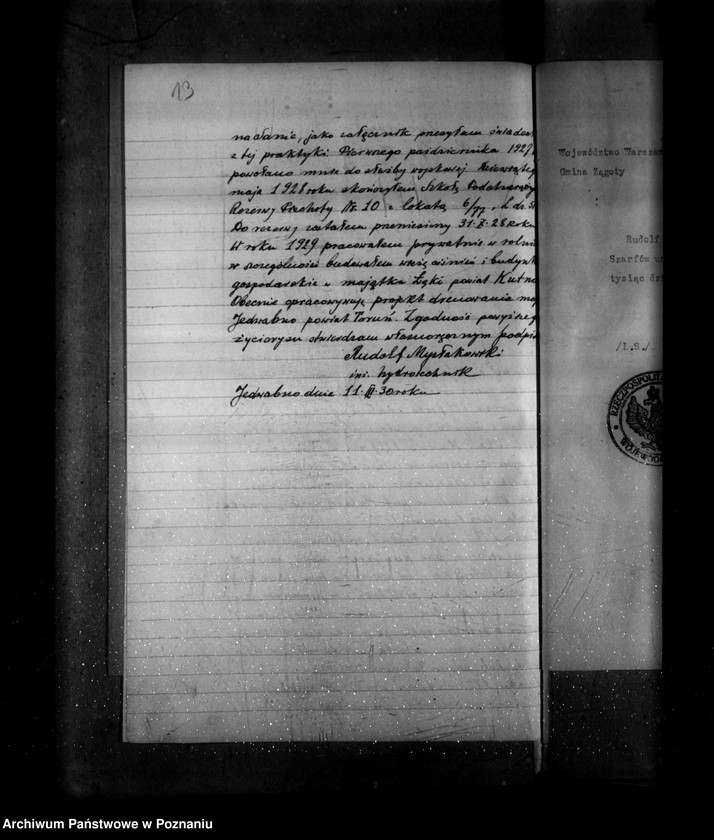 13
nadanie, jako załącznik przesyłam świadect
z tej praktyki. Pierwszego października 1927
powołano mnie do służby wojskowej
maja 1928 roku skończyłem Szkołę Podchorąży
Rezerwy Piechoty Nr. 10 z lokatą 6/77
Do rezerwy zostałem przeniesiony 31.X.28 roku
W roku 1929 pracowałem prywatnie w rolni
w szczególności budowałem i budynk
gospodarskie w majątku Łąki powiat Kutno
Obecnie opracowywuję projekt drenowania maj
Jedwabno powiat Toruń. Zgodność powyższeg
życiorysu stwierdzam własnoręcznym podpis
Rudolf Mysłakowski
inż. hydrotechnik
Jedwabno dnia 11. 30 roku
Województwo Warsza
Gmina Żegoty
Rudolf
Szarfów
tysiąc dzi
/L.S./
RZECZPOSPOLIT
WOJEWÓD
Archiwum Państwowe w Poznaniu